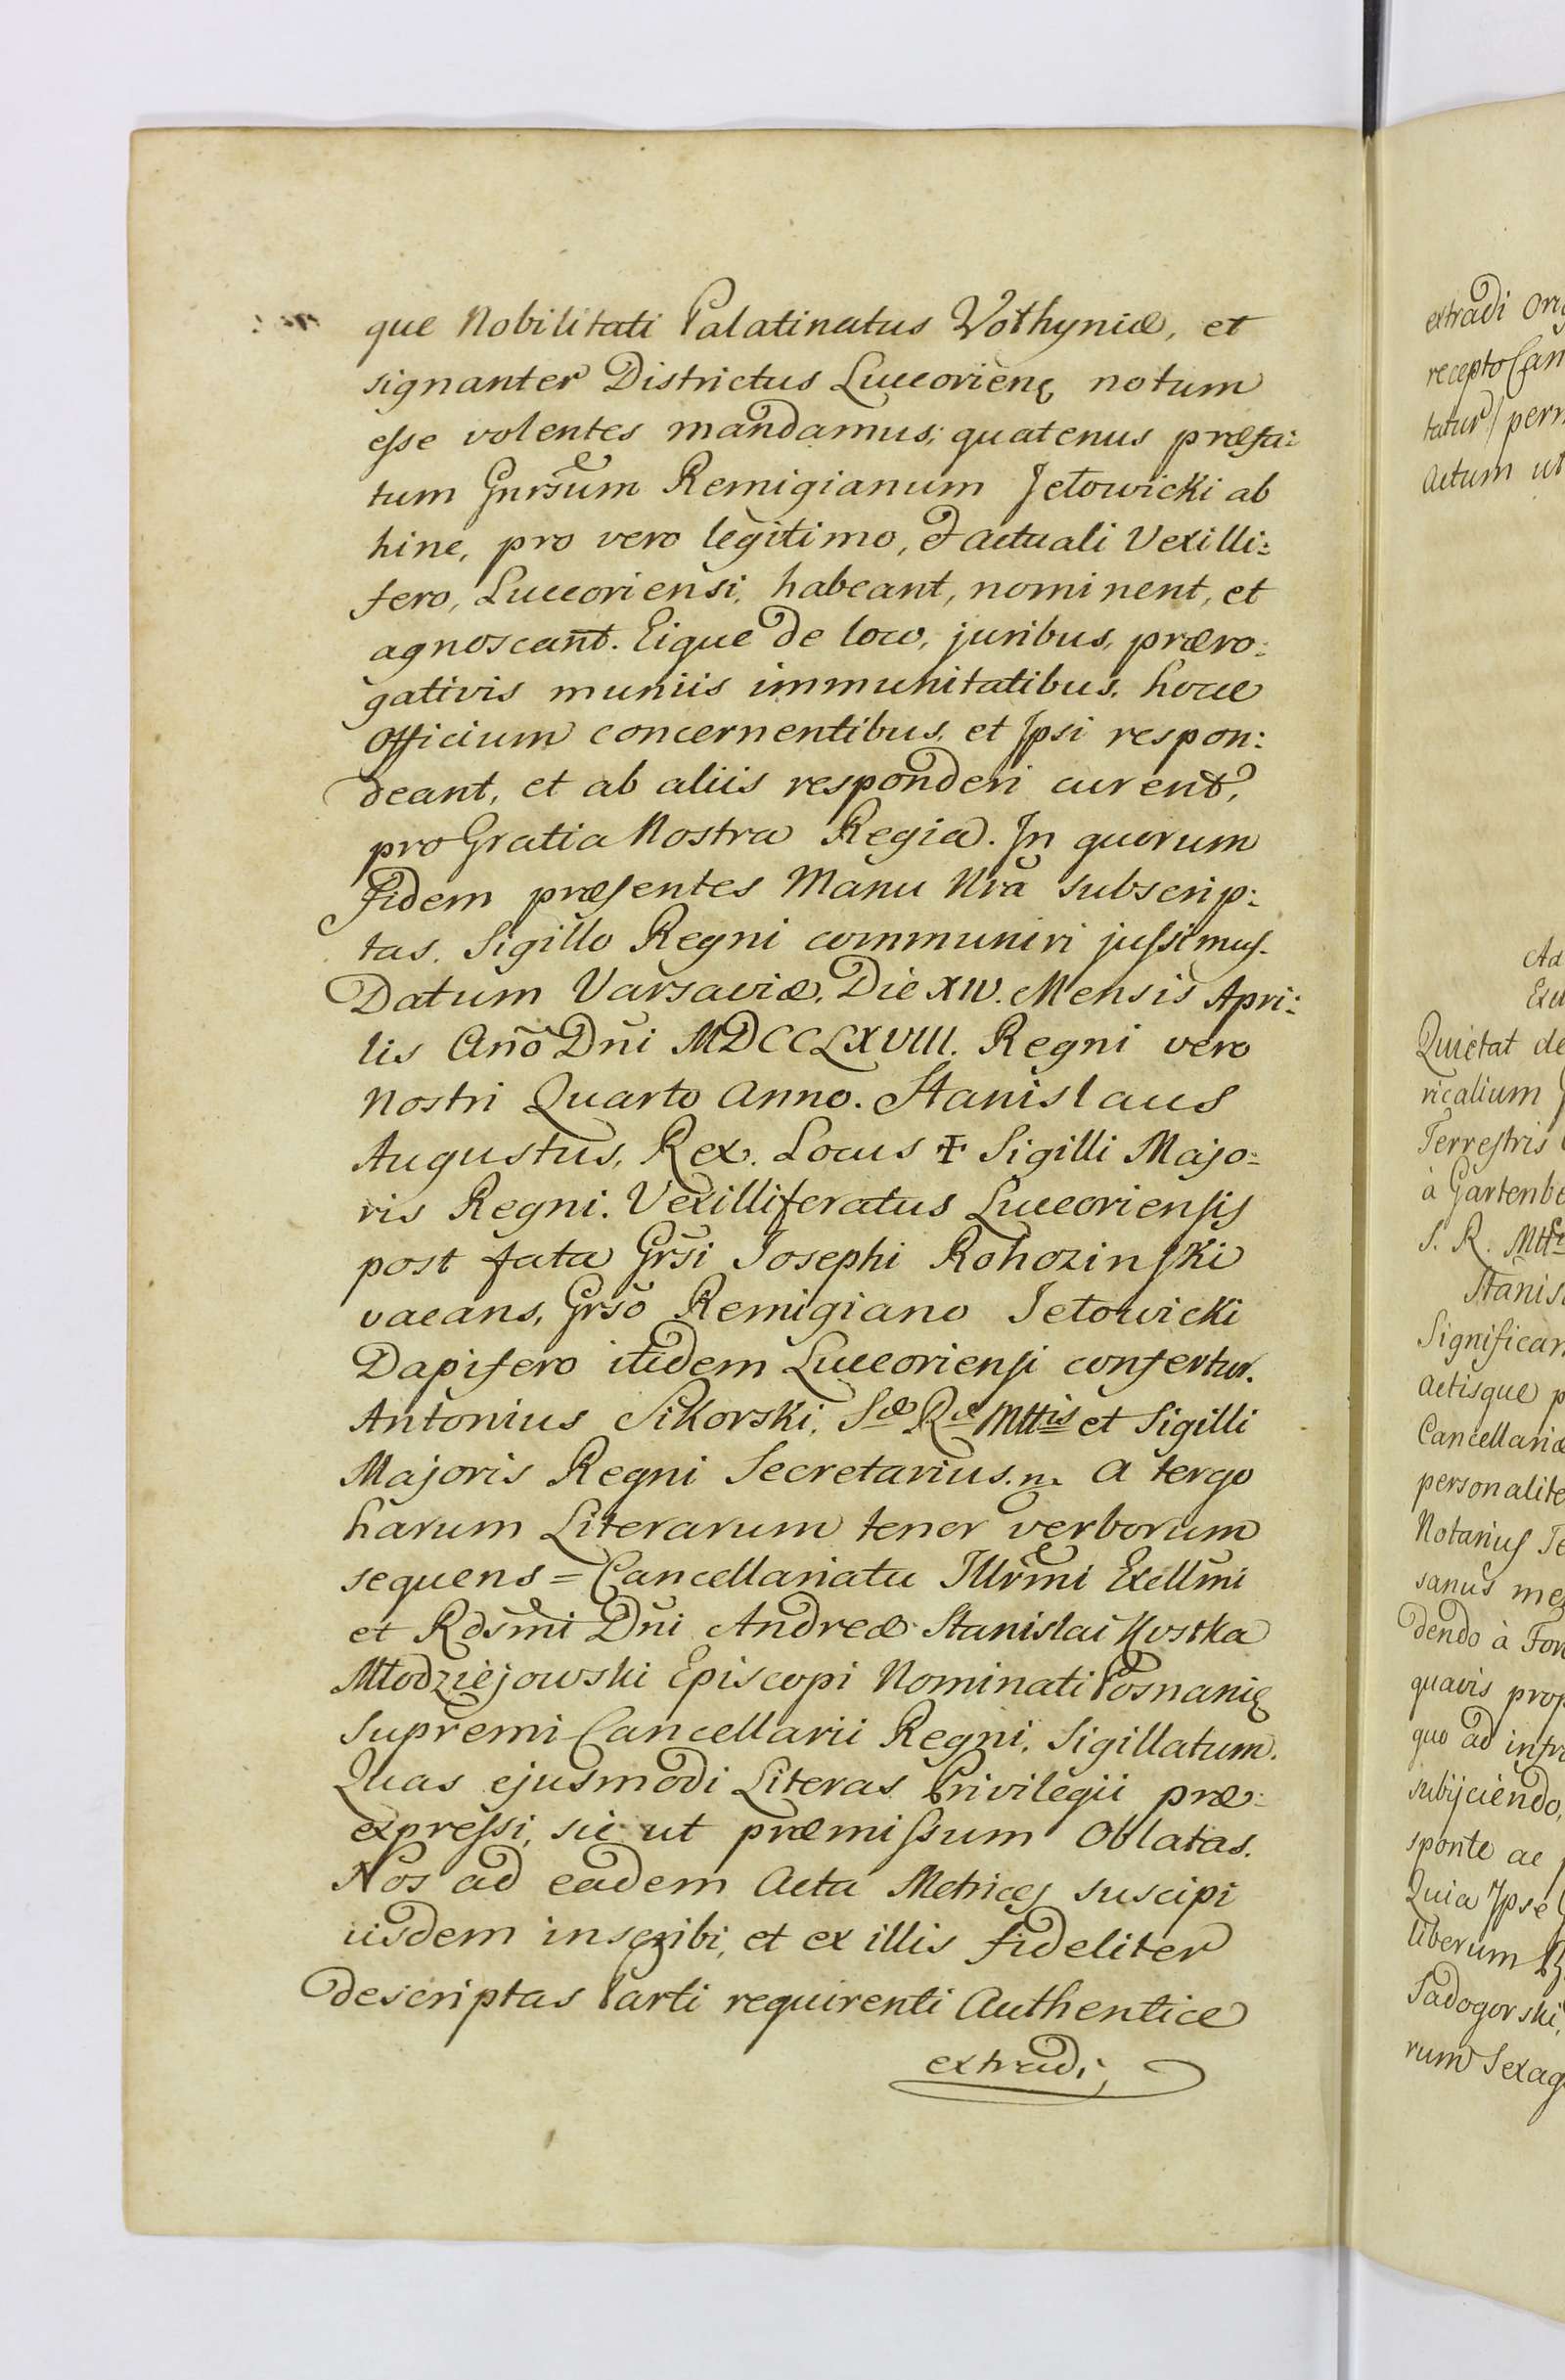 que Nobilitati Palatinatus Wołhyniæ, et
signanter Districtus Luceorienę notum
esse volentes mandamus; quatenus præfa:
tum Gnrsum Remigianum Jełowicki ab
hinc, pro vero legitimo, & actuali Vexilli:
fero, Luceoriensi, habeant, nominent, et
agnoscant. Eique de loco, juribus, præro:
gativis muniis immunitatibus, hocce
Officium concernentibus, et Ipsi respon:
deant, et ab aliis responderi curent,
pro Gratia Nostra Regia. In quorum
Fidem præsentes Manu Nrã subscrip:
tas, Sigillo Regni communiri jussimus.
Datum Varsaviæ, Die XIV. Mensis Apri:
lis Año Dñi MDCCLXVIII. Regni vero
Nostri Quarto Anno. Stanislaus
Augustus, Rex. Locus ✠ Sigilli Majo:
ris Regni. Vexilliferatus Luceoriensis
post fata Grsi Josephi Rohozinski
vacans, Grso Remigiano Jełowicki
Dapifero itidem Luceoriensi confertur.
Antonius Sikorski, Sæ Ræ Mttis et Sigilli
Majoris Regni Secretarius. m. A tergo
harum Literarum tenor verborum
sequens = Cancellariatu Illrmi Exellmi
et Rdsmi Dñi Andreæ Stanislai Kostka
Młodziejowski Episcopi Nominati Posnanię
Supremi Cancellarii Regni, Sigillatum.
Quas ejusmodi Literas Privilegii præ:
expressi, sic ut præmissum Oblatas.
Nos ad eadem Acta Metrices suscipi
iisdem inscribi, et ex illis fideliter
descriptas Parti requirenti Authentice
extradi,
extradi
recepto
tatur) 
Actum ut
Quietat de
ricalium
Terrestris
à
S. R. Mtt
Stanis
Significa
Actisque p
Cancellariæ
personalite
Notarius Te
sanus me
dendo à For
quavis prop
quo ad
subijciendo,
sponte ac
Quia Ipse
liberum
Sadogorski,
rum Sexag